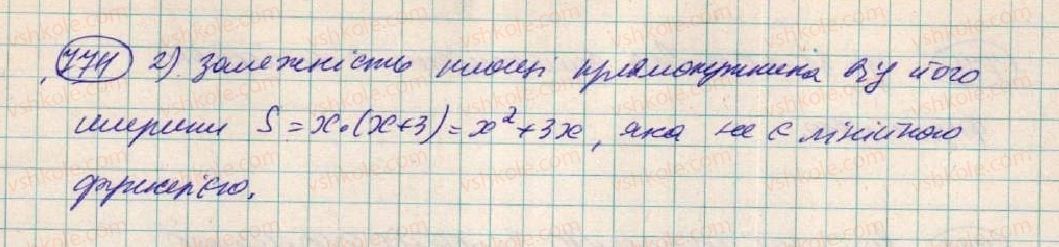 774 2) залежність площі прямокутника від його
ширини S = x·(x+3) = x²+3x, яка не є лінійною
функцією.